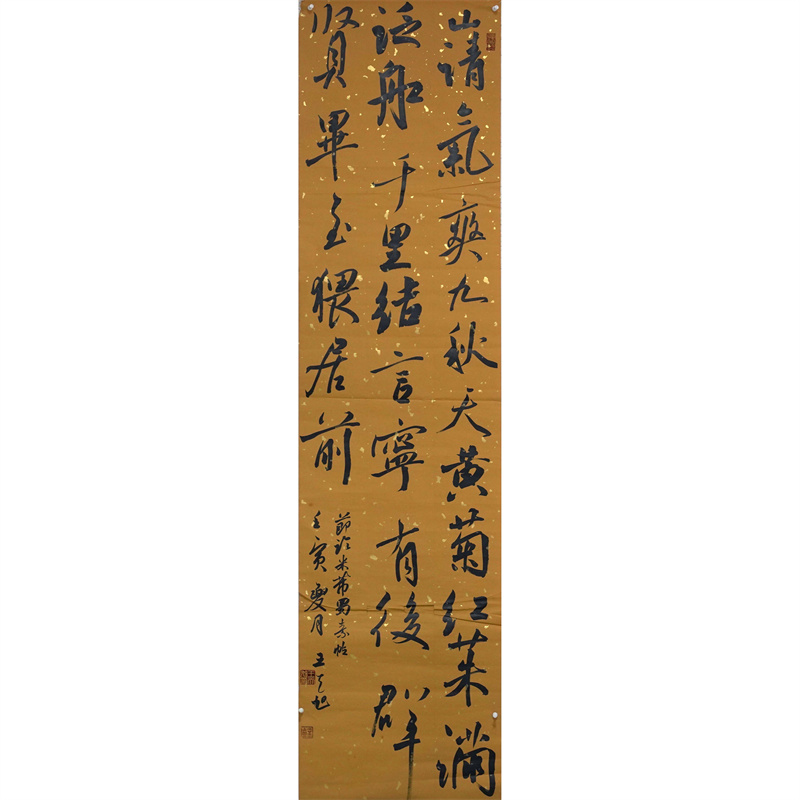 山清氣爽九秋天黃菊紅茱滿
泛船千里結言寧有後群
賢畢至猥居前
節臨米芾蜀素帖
壬寅夏月 王